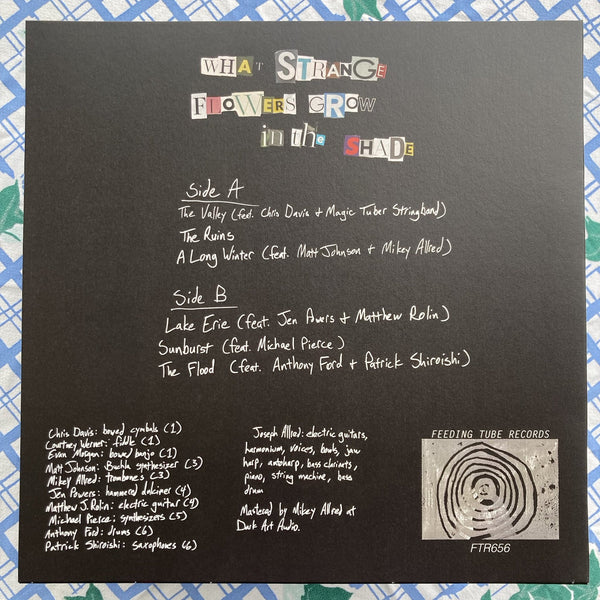 WHAT STRANGE
FLOWERS GROW
in the SHADE
Side A
The Valley (feat. Chris Davis + Magic Tuber Stringband)
The Ruins
A Long Winter (feat. Matt Johnson + Mikey Allred)
Side B
Lake Erie (feat. Jen Powers + Matthew Rolin)
Sunburst (feat. Michael Pierce)
The Flood (feat. Anthony Ford + Patrick Shiroishi)
Chris Davis: bowed cymbals (1)
Courtney Werner: fiddle (1)
Evan Morgan: bowed banjo (1)
Matt Johnson: Buchla synthesizer (3)
Mikey Allred: trombones (3)
Jen Powers: hammered dulcimer (4)
Matthew J. Rolin: electric guitar (4)
Michael Pierce: synthesizers (5)
Anthony Ford: drums (6)
Patrick Shiroishi: saxophones (6)
Joseph Allred: electric guitars,
harmonium, voices, bowls, jaw
harp, autoharp, bass clarinets,
piano, string machine, bass
drum
Mastered by Mikey Allred at
Dark Art Audio.
FEEDING TUBE RECORDS
FTR656